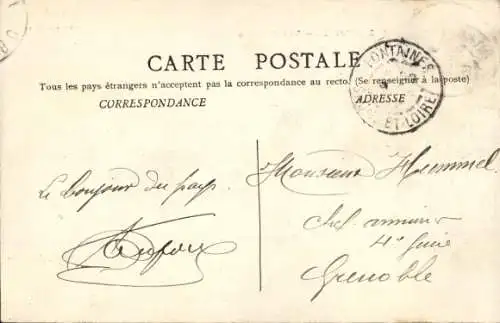 CARTE POSTALE
Tous les pays étrangers n'acceptent pas la correspondance au recto. (Se renseigner à la poste)
CORRESPONDANCE
ADRESSE
FONTAINES
SAÔNE-ET-LOIRE
Le bonjour du pays
Monsieur Hummel
chef
4e Génie
Grenoble